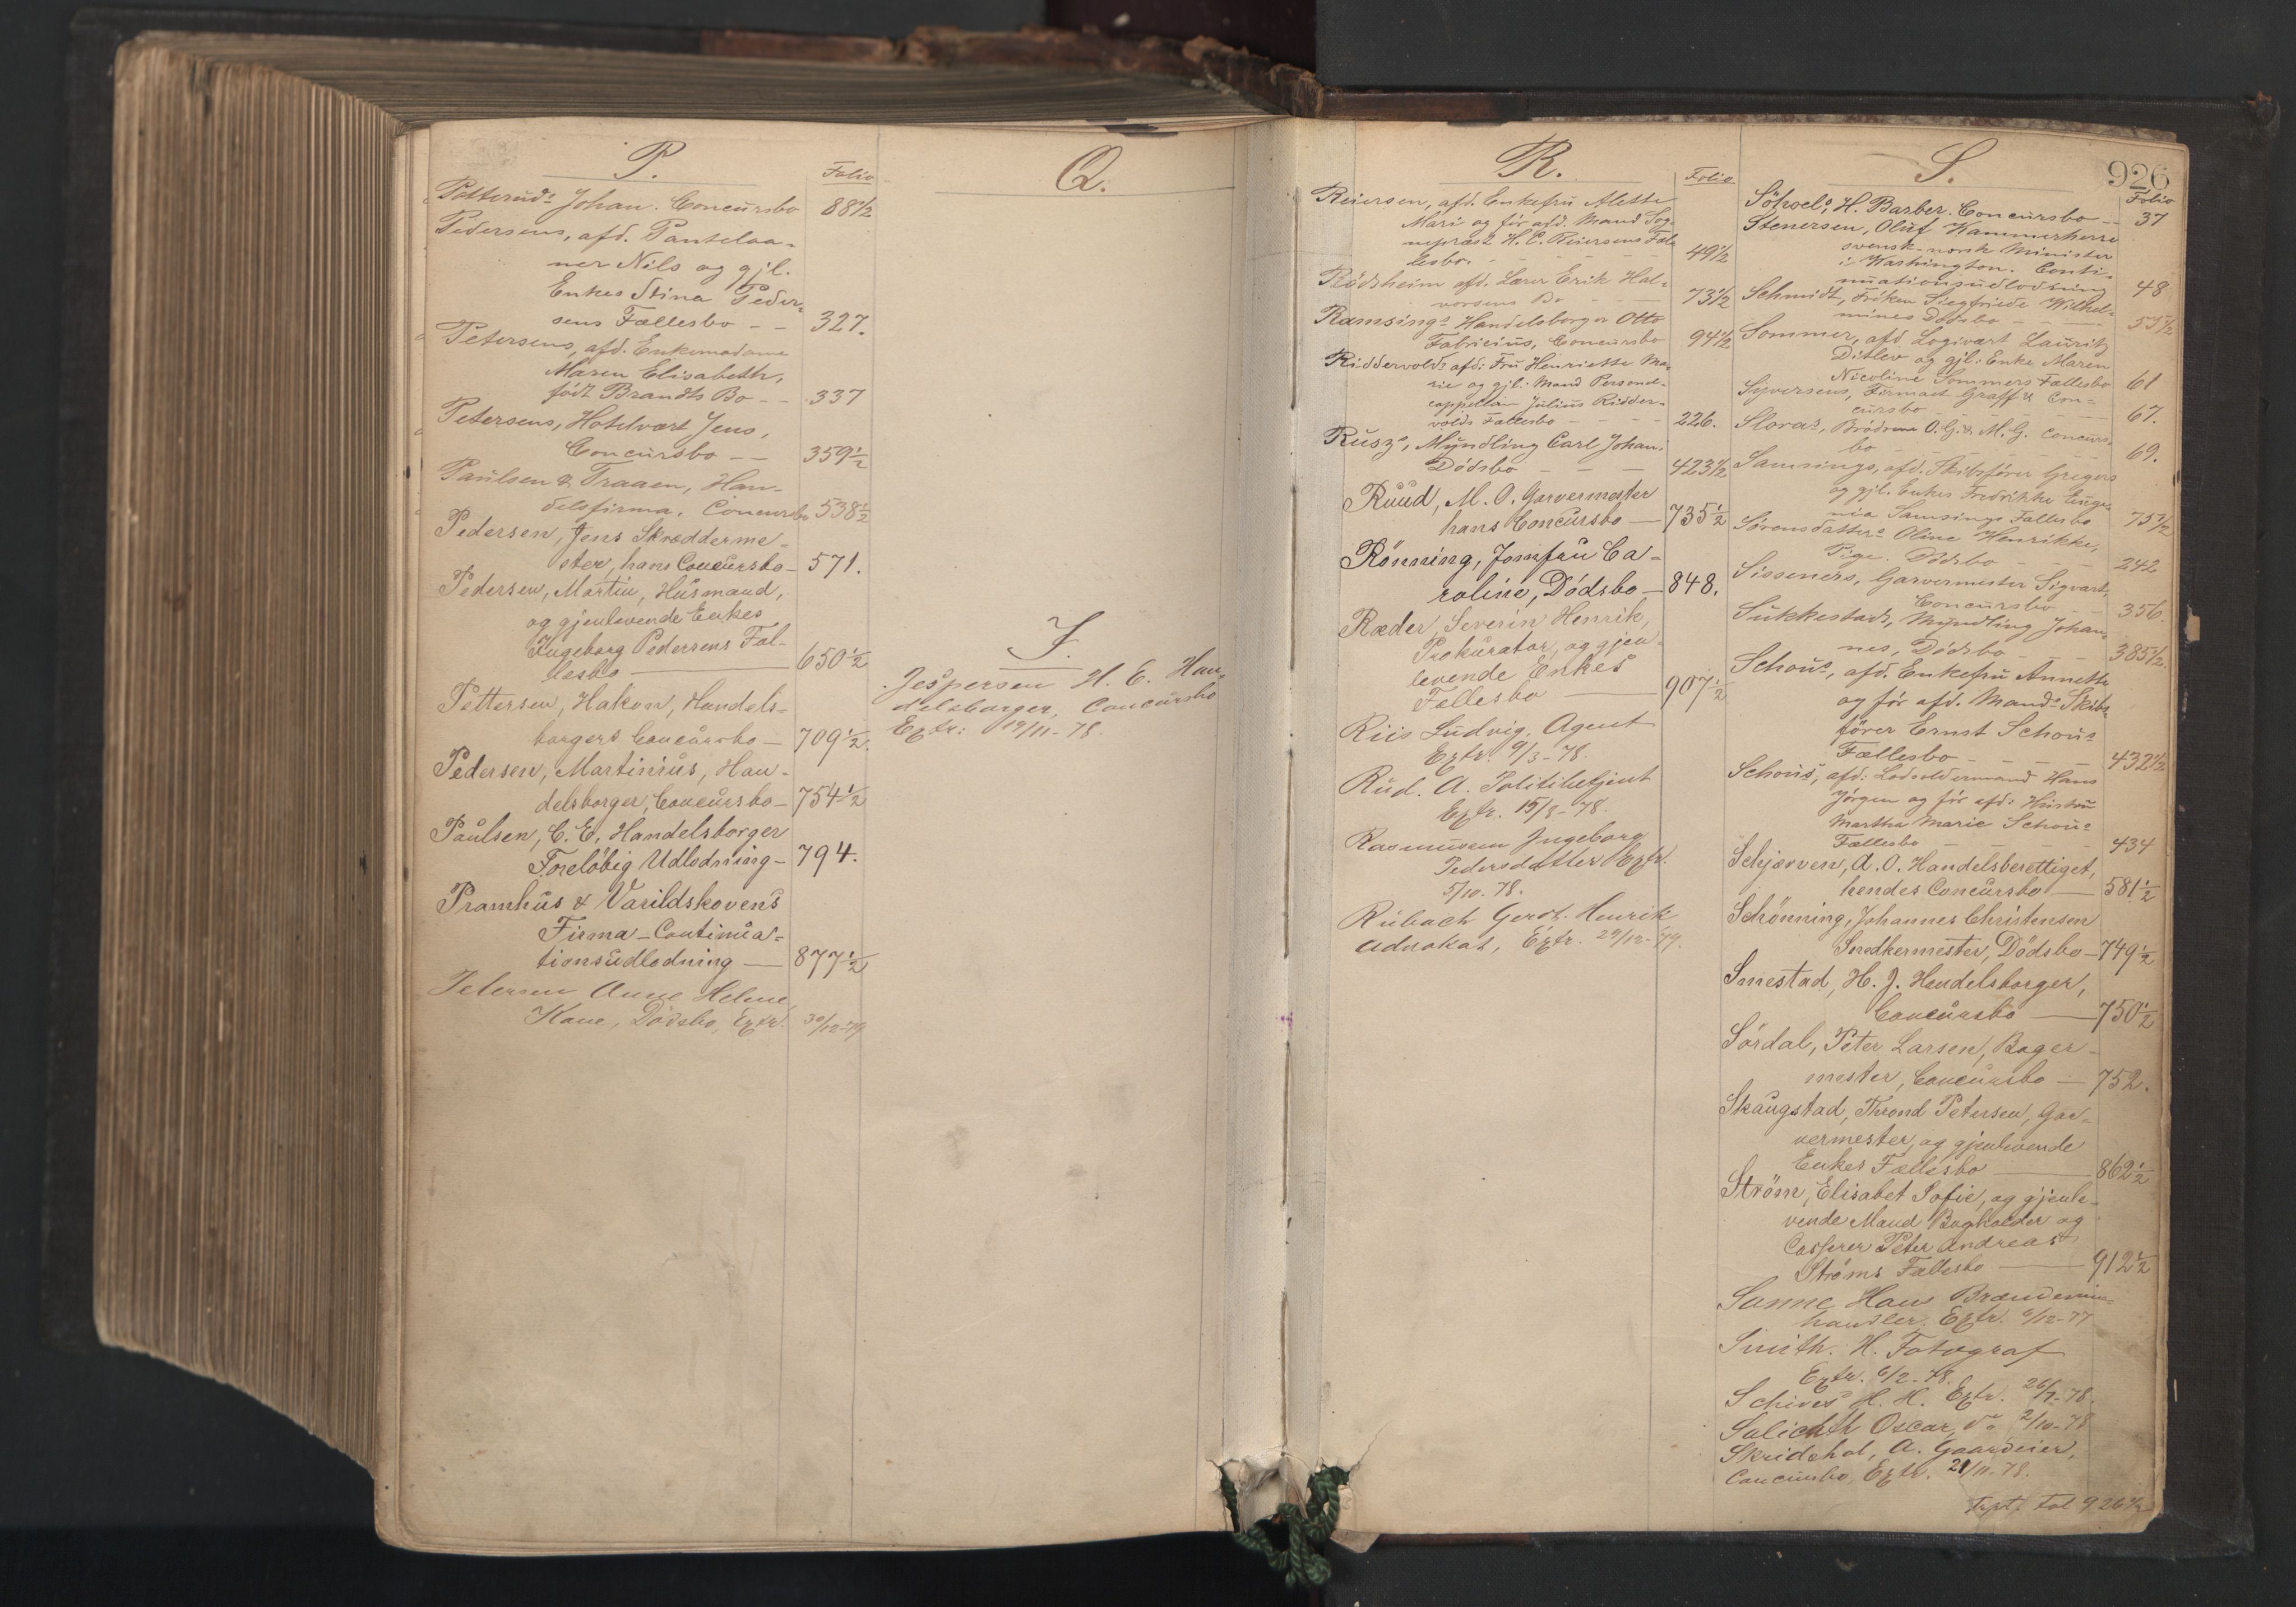 P.
Folio
Potterud's Johan. Concursbo 88 1/2
Pedersens, afd. Pantelaa-
ner Nils og gjl.
Enkes Stina Peder-
sens Fællesbo - - 327.
Petersens, afd. Enkemadame
Maren Elisabeth,
født Brandts Bo - - 337
Petersens, Hotelvært Jens,
Concursbo - - 359 1/2
Paulsen & Traaen, Han-
delsfirma, Concursbo 538 1/2
Pedersen, Jens Skrædderme-
ster, hans Concursbo - 571.
Pedersen, Martin, Husmand,
og gjenlevende Enkes
Ingeborg Pedersens Fæl-
lesbo - 650 1/2
Pettersen, Hakon, Handels-
borgers Concursbo - 709 1/2.
Pedersen, Martinius, Han-
delsborger, Concursbo - 754 1/2
Paulsen, C. E. Handelsborger
Foreløbig Udlodning - 794.
Pramhus & Varildskovens
Firma - Continua-
tionsudlodning - 877 1/2
Petersen Anne Helene,
Kone, Dödsbo, Extr. 30/12-79
Q.
J.
Jespersen H. E. Han-
delsborger, Concursbo
Extr: 19/11-78.
R.
Folio
Reiersen, afd. Enkefru Alette
Mari og før afd. Mand Sog-
nepræst H. C. Reiersens Fæl-
lesbo. - - - 49 1/2
Rödsheim afd. Lærer Erik Hal-
vorsens Bo - - 73 1/2
Ramsings Handelsborger Otto
Fabricius, Concursbo 94 1/2
Riddervolds afd: Fru Henriette Ma-
rie og gjl. Mand Personel-
cappellan Julius Ridder-
volds Fællesbo - - - 226.
Rusz's, Myndling Carl Johan.
Dödsbo - - - 423 1/2
Ruud, M. O. Garvermester
hans Concursbo - 735 1/2
Rönning, Jomfru Ca-
roline, Dödsbo - 848.
Ræder, Severin Henrik,
Prokurator, og gjen-
levende Enkes
Fællesbo - 907 1/2
Riis Ludvig, Agent
Extr. 9/3-78.
Rud. A. Politibetjent
Extr. 15/8-78.
Rasmussen Ingeborg
Pedersdatter Extr.
5/10-78.
Rubach Gerdt. Henrik
Advokat, Extr. 29/12-79.
S.
926
Folio
Söhoel's, H. Barber. Concursbo - - 37
Stenersen, Oluf Kammerherre
svensk-norsk Minister
i Washington. Conti-
nuationsudlodning 48
Schmidt, Fröken Siegfriede Wilhel-
mines Dödsbo - - - 55 1/2
Sommer, afd. Logivært Lauritz
Ditlev og gjl: Enke Maren
Nicoline Sommers Fællesbo 61
Syversens, Firmaet Graff & Con-
cursbo - - - 67.
Slora's, Brödrene O. G. & M. G. Concurs-
bo - - - 69.
Samsings, afd. Skibsförer Gregers
og gjl. Enkes Fredrikke Euge-
nia Samsings Fællesbo 75 1/2
Sörensdatters Oline Henrikke,
Pige. Dödsbo - - - 242
Sisseners, Garvermester Sigvart,
Concursbo - - 356.
Sukkestads, Myndling Johan-
nes, Dödsbo - - - 385 1/2.
Schous, afd. Enkefru Annette
og før afd. Mands Skibs-
förer Ernst Schous
Fællesbo - - - 432 1/2
Schous, afd: Lodsoldermand Hans
Jörgen og før afd: Hustru
Martha Marie Schous
Fællesbo - - - 434
Schjærven, A. O. Handelsberettiget,
hendes Concursbo - 581 1/2
Schönning, Johannes Christensen
Snedkermester, Dödsbo - 749 1/2
Smestad, H. J. Handelsborger,
Concursbo - 750 1/2
Sördal, Peter Larsen, Bager-
mester, Concursbo - 752.
Skaugstad, Thrond Petersen, Gar-
vermester, og gjenlevende
Enkes Fællesbo - 862 1/2
Ström, Elisabet Sofie, og gjenle-
vende Mand Bogholder og
Casserer Peter Andreas
Ströms Fællesbo - 912 1/2
Sanne Hans Brændevins-
handler. Extr. 6/12-77
Smith. H. Fotograf
Extr. 6/2-78.
Schives H. H. Extr. 26/7-78.
Salicath Oscar, do 2/10-78
Skridshol, A. Gaardeier,
Concursbo, Extr. 21/11-78.
Fort. Fol 926 1/2